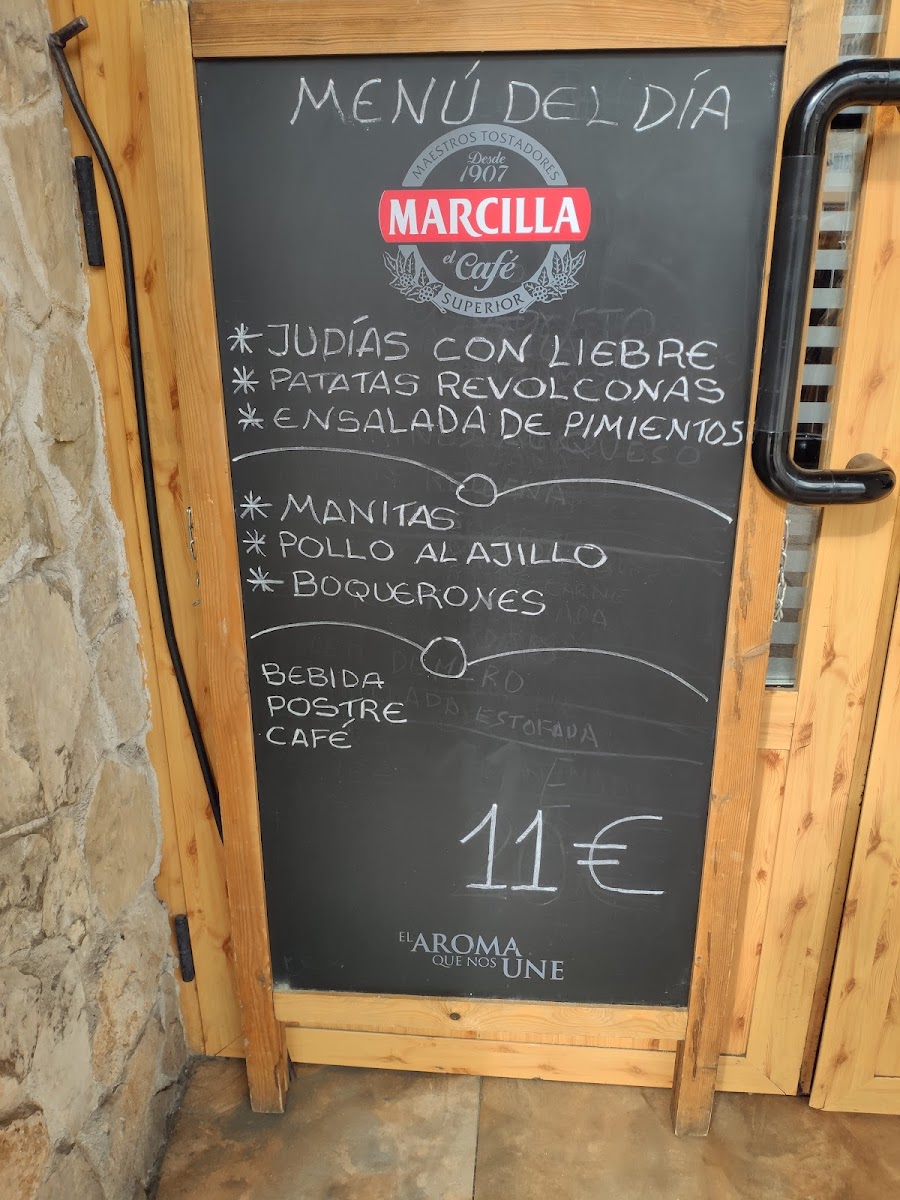 MENÚ DEL DÍA
MAESTROS TOSTADORES
Desde
1907
MARCILLA
el Café
SUPERIOR
* JUDÍAS CON LIEBRE
* PATATAS REVOLCONAS
* ENSALADA DE PIMIENTOS
* MANITAS
* POLLO AL AJILLO
* BOQUERONES
BEBIDA
POSTRE
CAFÉ
ESTOFADA
11 €
EL AROMA
QUE NOS UNE